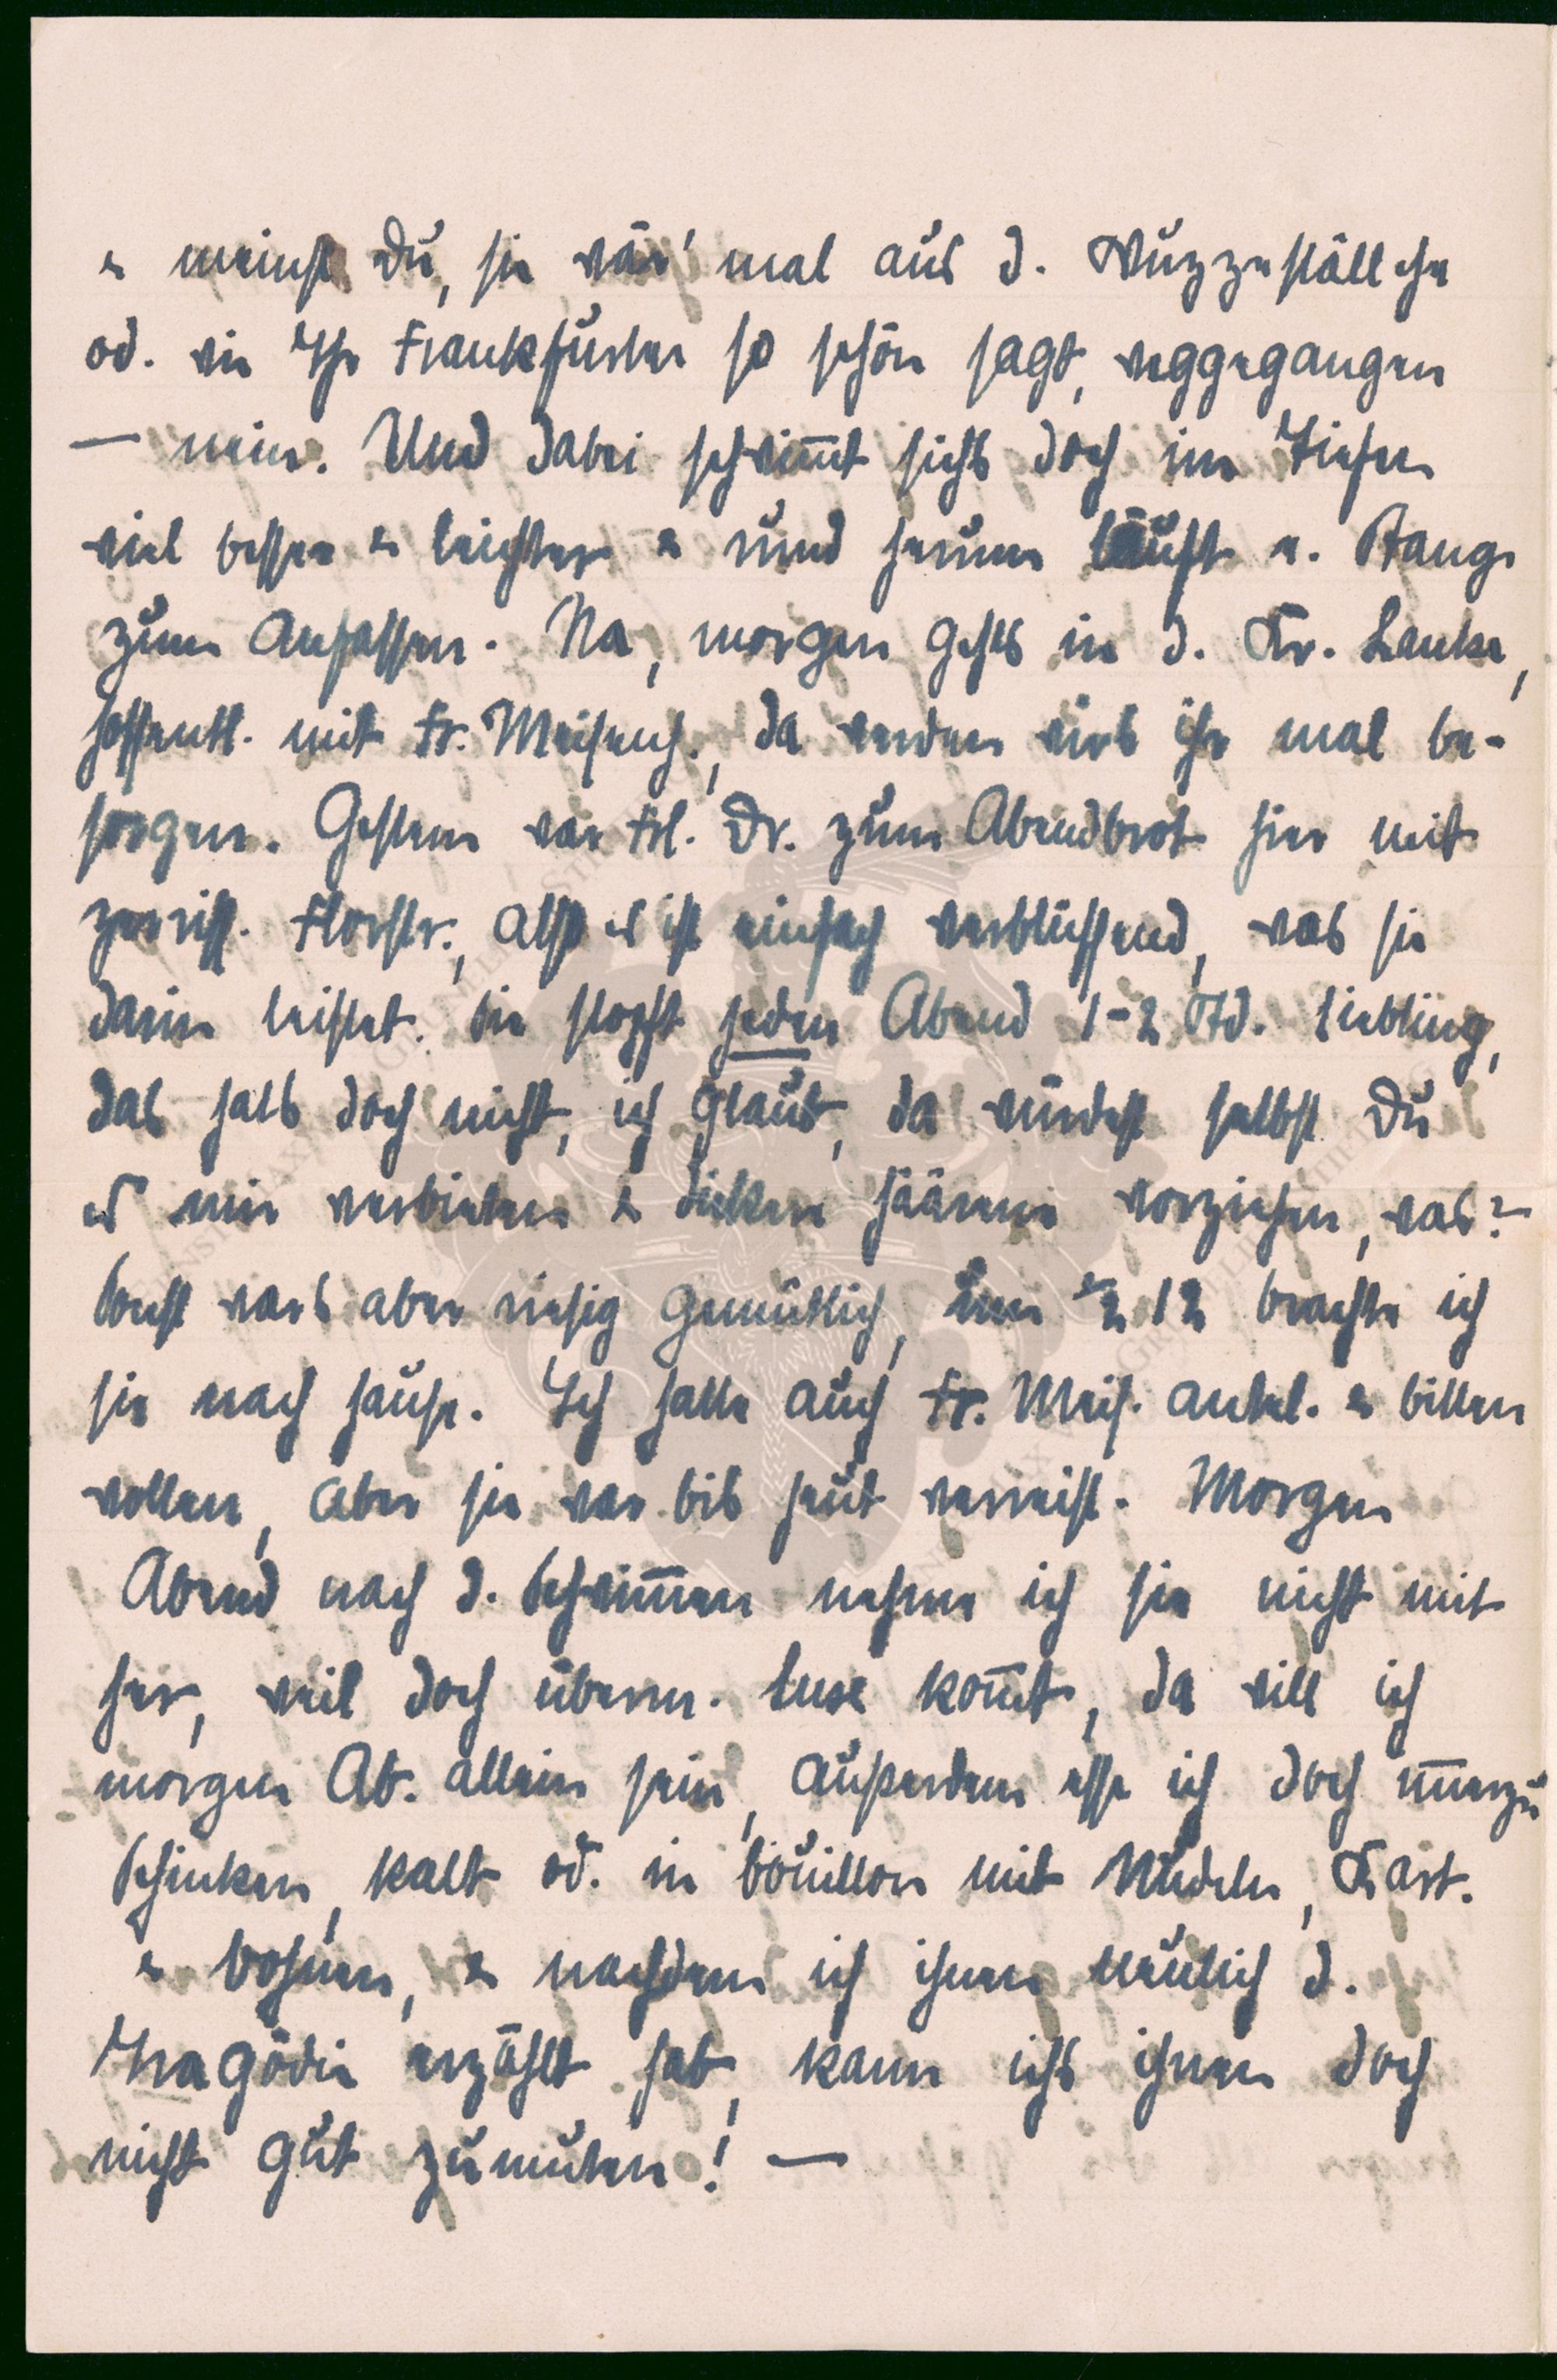 & meinst Du, sie wär' mal aus d. Wuzzeställche
od. wie Ihr Frankfurter so schön sagt, weggegangen
— nein. Und dabei schwim̅t sichs doch im Tiefen
viel besser & leichter & rund herum läuft e. Stange
zum Anfassen. Na, morgen gehts in d. Kr. Lanke,
hoffentl. mit Fr. Meisench., da werden wirs ihr mal be-
sorgen. Gestern war Frl. Dr. zum Abendbrot hier mit
zerriss. Florstr., also es ist einfach verblüffend, was sie
darin leistet. Sie stopft jeden Abend 1-2 Std. Liebling,
das halb doch nicht, ich glaub, da würdest selbst Du
es mir verbieten & dicken häärene vorziehen, was?
Sonst wars aber riesig gemütlich, um ½ 12 brachte ich
sie nach Hause. Ich hatte auch Fr. Meis. antel. & bitten
wollen, aber sie war bis heut verreist. Morgen
Abend nach d. Schwim̅en nehme ich sie nicht mit
her, weil doch überm. Luse kom̅t, da will ich
morgen Ab. allein sein, außerdem esse ich doch im̅erzu
Schinken, kalt od. in Bouillon mit Nudeln, Kart.
& Bohnen, & nachdem ich ihnen neulich d.
Tragödie erzählt hab, kann ichs ihnen doch
nicht gut zumuten! —